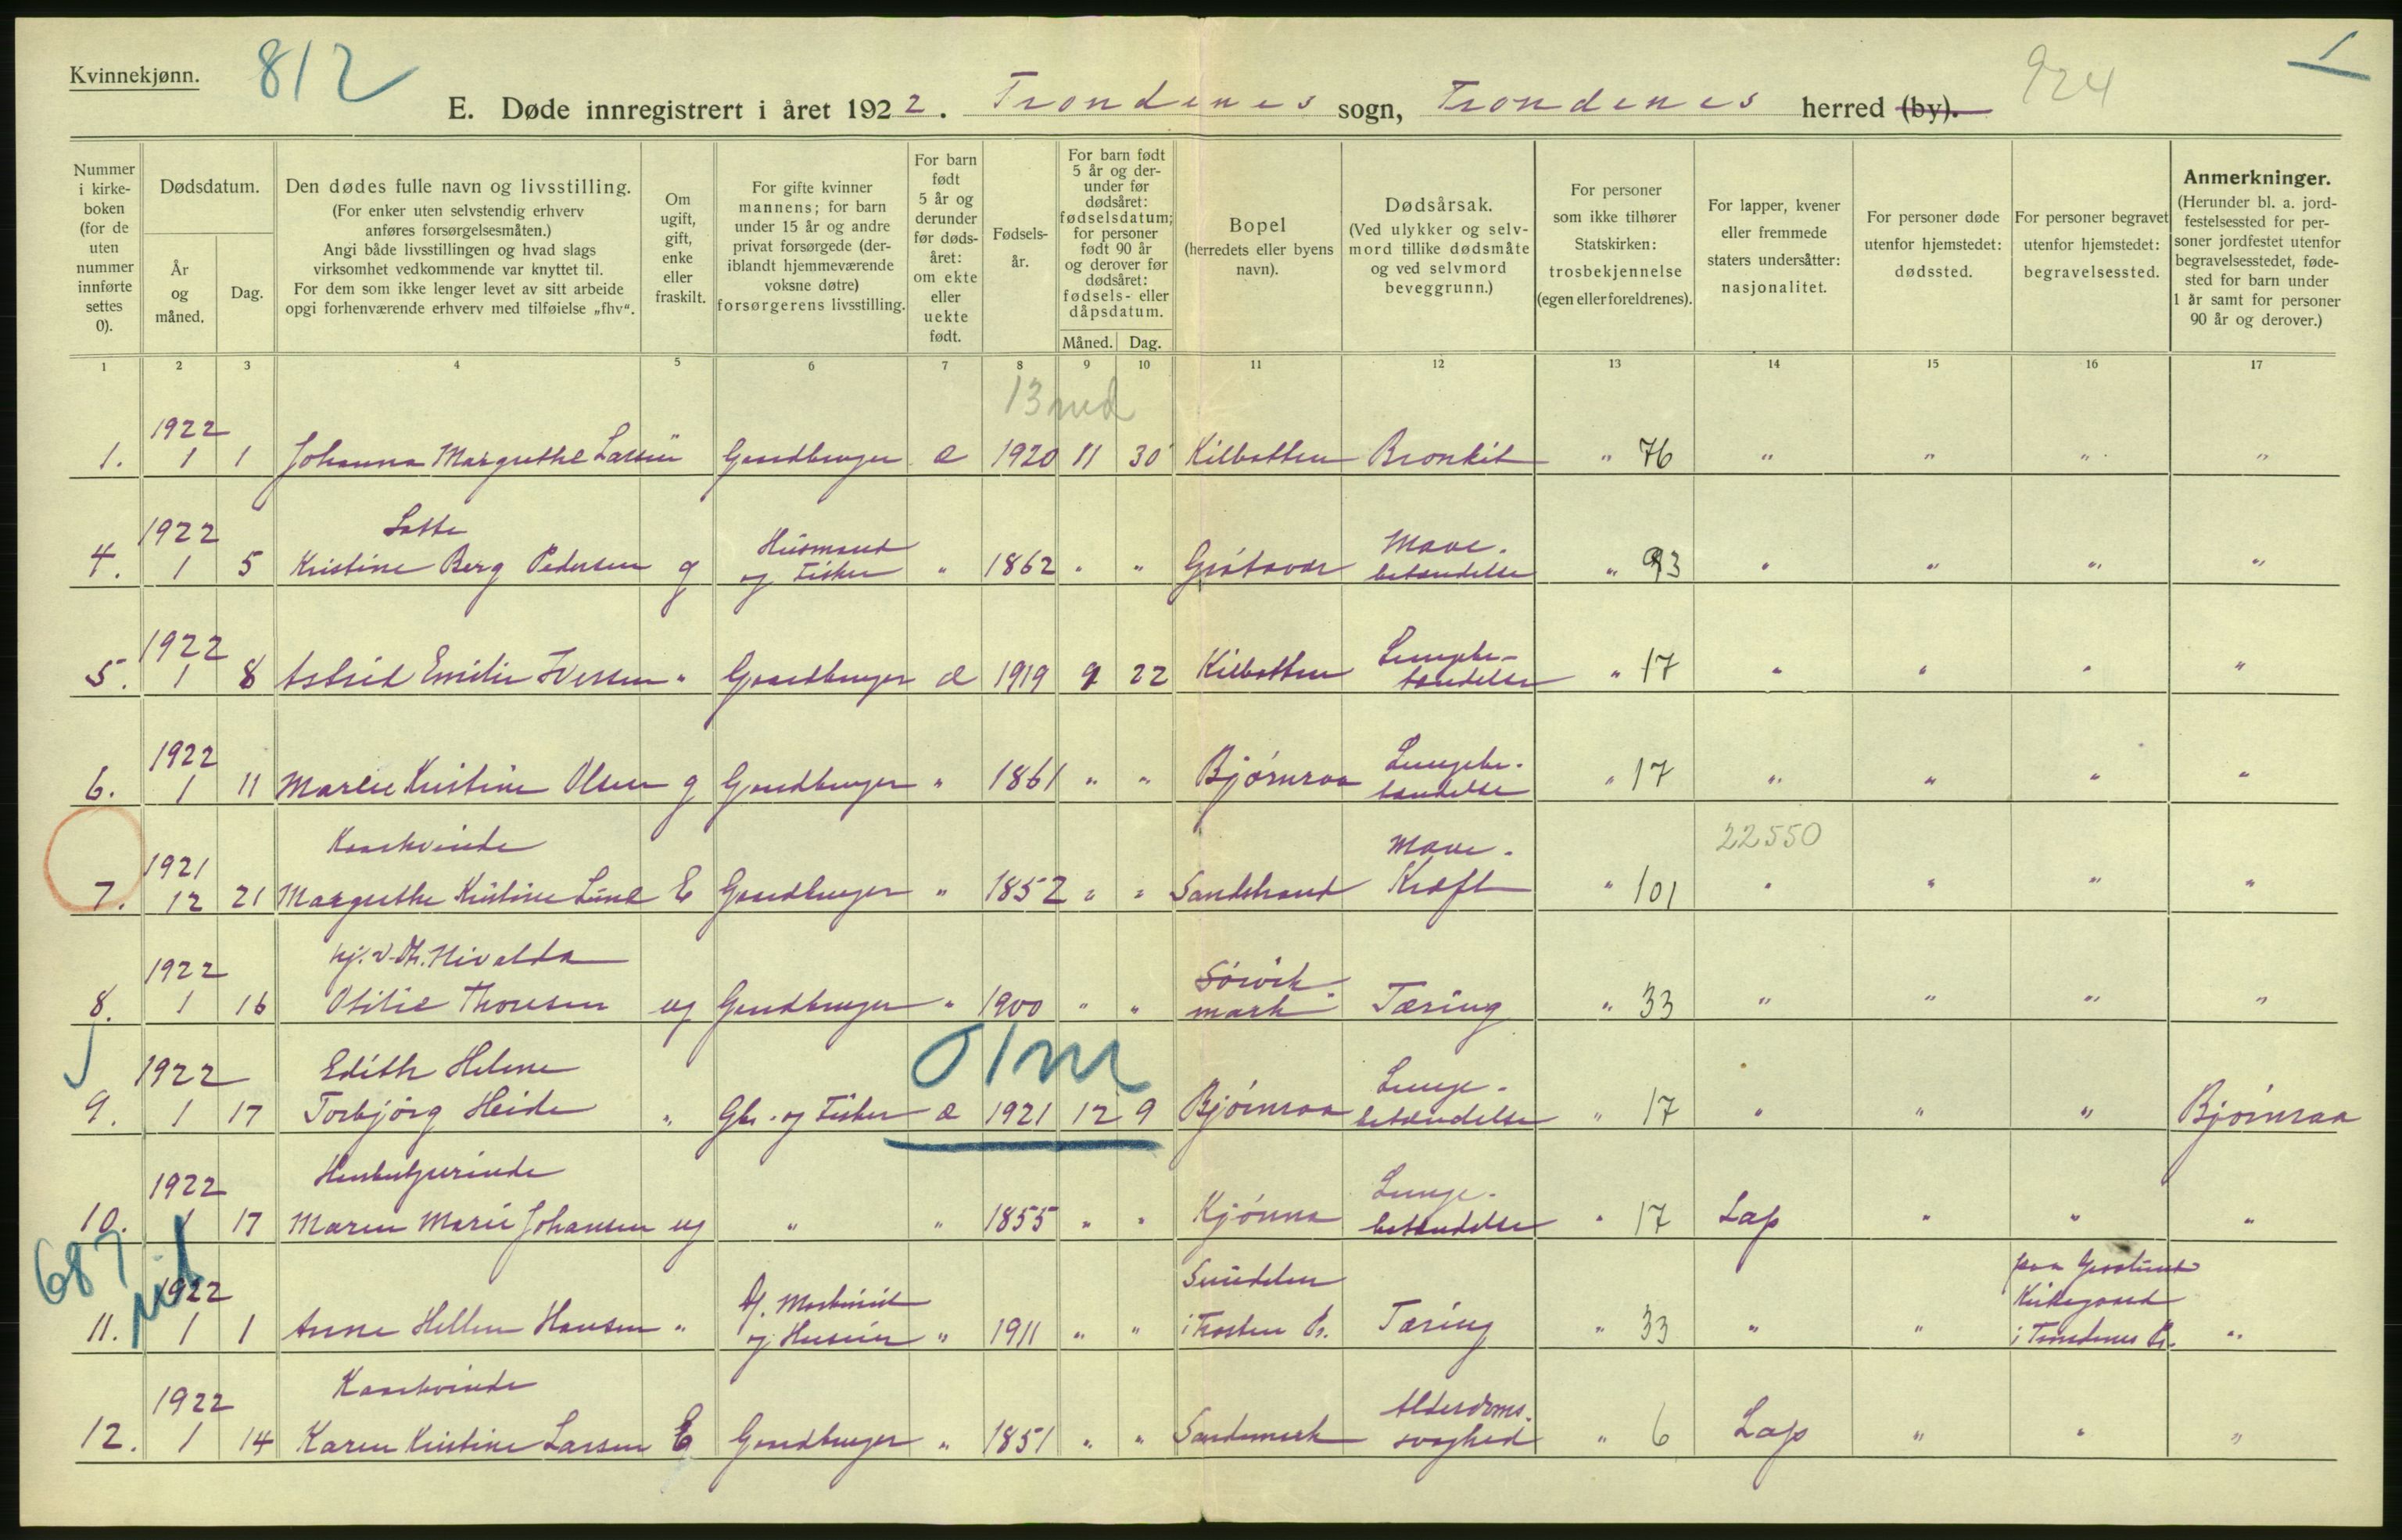 Kvinnekjønn.
812
924
1
E. Døde innregistrert i året 1922. Trondenes sogn, Trondenes herred (by).
Nummer i kirkeboken (for de uten nummer innførte settes 0).
Dødsdatum.
År og måned.
Dag.
Den dødes fulle navn og livsstilling.
(For enker uten selvstendig erhverv anføres forsørgelsesmåten.)
Angi både livsstillingen og hvad slags virksomhet vedkommende var knyttet til.
For dem som ikke lenger levet av sitt arbeide opgi forhenværende erhverv med tilføielse „fhv“.
Om ugift, gift, enke eller fraskilt.
For gifte kvinner mannens; for barn under 15 år og andre privat forsørgede (deriblandt hjemmeværende voksne døtre) forsørgerens livsstilling.
For barn født 5 år og derunder før dødsåret: om ekte eller uekte født.
Fødselsår.
For barn født 5 år og derunder før dødsåret: fødselsdatum; for personer født 90 år og derover før dødsåret: fødsels- eller dåpsdatum.
Måned. Dag.
Bopel (herredets eller byens navn).
Dødsårsak.
(Ved ulykker og selvmord tillike dødsmåte og ved selvmord beveggrunn.)
For personer som ikke tilhører Statskirken: trosbekjennelse (egen eller foreldrenes).
For lapper, kvener eller fremmede staters undersåtter: nasjonalitet.
For personer døde utenfor hjemstedet: dødssted.
For personer begravet utenfor hjemstedet: begravelsessted.
Anmerkninger.
(Herunder bl. a. jordfestelsessted for personer jordfestet utenfor begravelsesstedet, fødested for barn under 1 år samt for personer 90 år og derover.)
1 2 3 4 5 6 7 8 9 10 11 12 13 14 15 16 17
13 md
1922
1. 1 1 Johanna Margrethe Larsen " Gaardbruger e 1920 11 30 Kilbotten Bronkit " 76 " " " "
1922 Lotte Husmand Mave-
4. 1 5 Kristine Berg Pedersen g og Fisker " 1862 " " Grøtavær betændelse " 93 " " " "
1922 Lungebe-
5. 1 8 Astrid Emilie Iversen " Gaardbruger e 1919 9 22 Kilbotten tændelse " 17 " " " "
1922 Lungebe-
6. 1 11 Marie Kristine Olsen g Gaardbruger " 1861 " " Bjørnraa tændelse " 17 " " " "
1921 Kaarkvinde Mave- 22550
7. 12 21 Margrethe Kristine Lind E Gaardbruger " 1852 " " Sandstrand Kræft " 101 " " " "
1922 Hj. v. Th. Nivalda Sørvik-
8. 1 16 Otilie Thoresen ug Gaardbruger " 1900 " " mark Tæring " 33 " " " "
01m
1922 Edith Helene Lunge-
9. 1 17 Torbjørg Heide " Gbr. og Fisker e 1921 12 9 Bjørnraa betændelse " 17 " " " Bjørnraa
1922 Lunge-
10. 1 17 Maren Marie Johansen ug " " 1855 " " Kjønna betændelse " 17 Lap " " "
687
1922 og Husmor
11. 1 1 Anna Hellen Hansen " " 1911 " " Tæring " 33 " " i Trondenes Pr. "
paa Kirkegaard
1922 Kaarkvinde Alderdoms-
12. 1 14 Karen Kristine Larsen E Gaardbruger " 1851 " " Sandemark svaghed " 6 Lap " " "